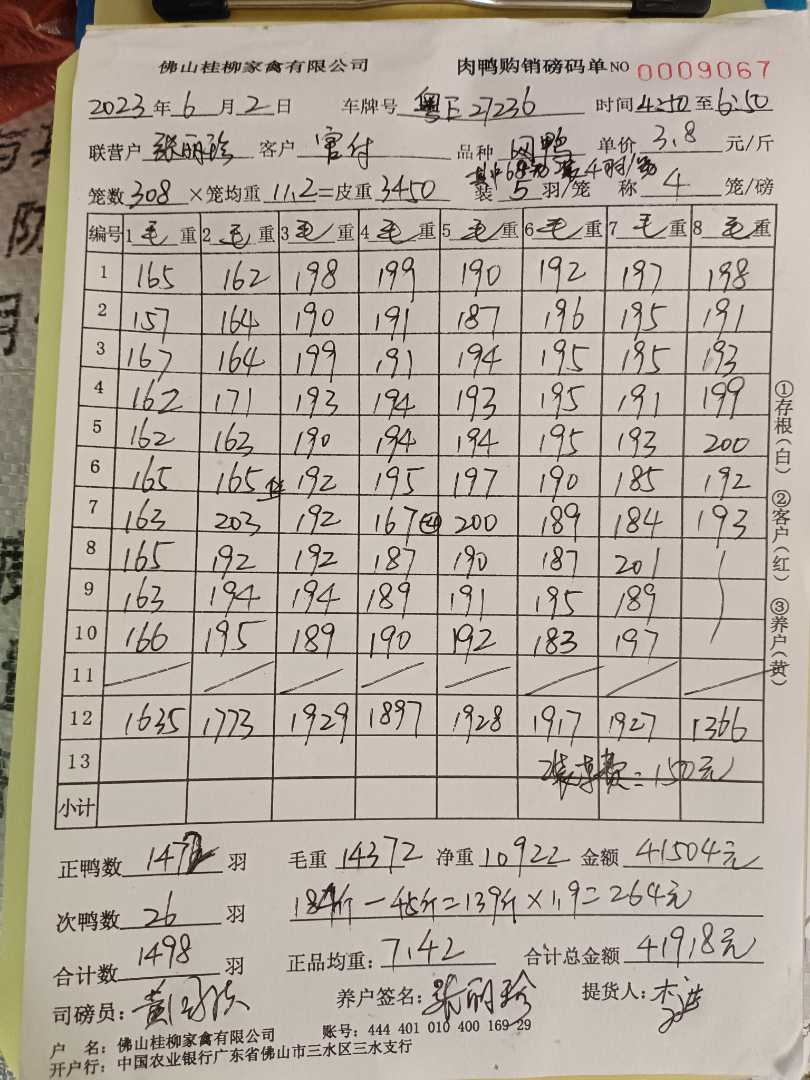 佛山桂柳家禽有限公司 肉鸭购销磅码单 NO 0009067
2023年6月2日 车牌号 粤E27236 时间4:50至6:50
联营户 张丽珍 客户 官付 品种 网鸭 单价 3.8 元/斤
笼数308×笼均重11.2=皮重3450 装5羽/笼 称4笼/磅
编号 1毛重 2毛重 3毛重 4毛重 5毛重 6毛重 7毛重 8毛重
1 165 162 198 199 190 192 197 198
2 157 164 190 191 187 196 195 191
3 167 164 199 191 194 195 195 193
4 162 171 193 194 193 195 191 199
5 162 163 190 194 194 195 193 200
6 165 165 192 195 197 190 185 192
7 163 203 192 167 200 189 184 193
8 165 192 192 187 190 187 201
9 163 194 194 189 191 195 189
10 166 195 189 190 192 183 197
11
12 1635 1773 1929 1897 1928 1917 1927 1366
13 装车费=150元
小计
正鸭数 1472 羽 毛重 14372 净重 10922 金额 41504元
次鸭数 26 羽 184斤-45斤=139斤×1.9=264元
合计数 1498 羽 正品均重:7.42 合计总金额 41918元
司磅员: 养户签名:张丽珍 提货人:
户 名:佛山桂柳家禽有限公司 账号:444 401 010 400 169 29
开户行:中国农业银行广东省佛山市三水区三水支行
①存根(白) ②客户(红) ③养户(黄)